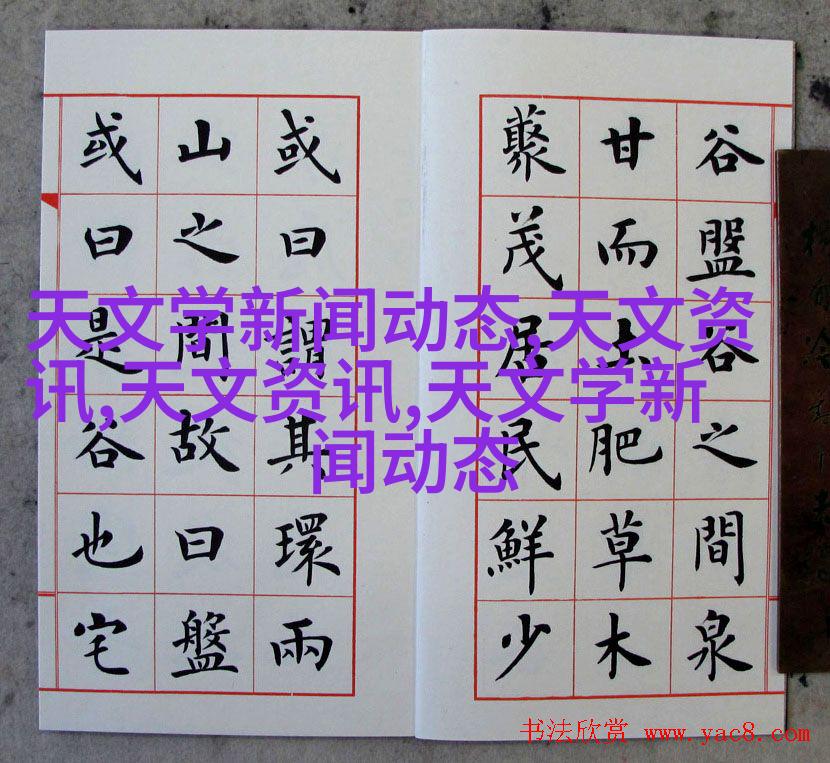 谷盤谷之間泉
甘而土肥草木
藂茂居民鮮少
或曰謂其環兩
山之間故曰盤
或曰是谷也宅
天文学新闻动态,天文资
讯,天文资讯,天文学新
闻动态
书法欣赏 www.yac8.com